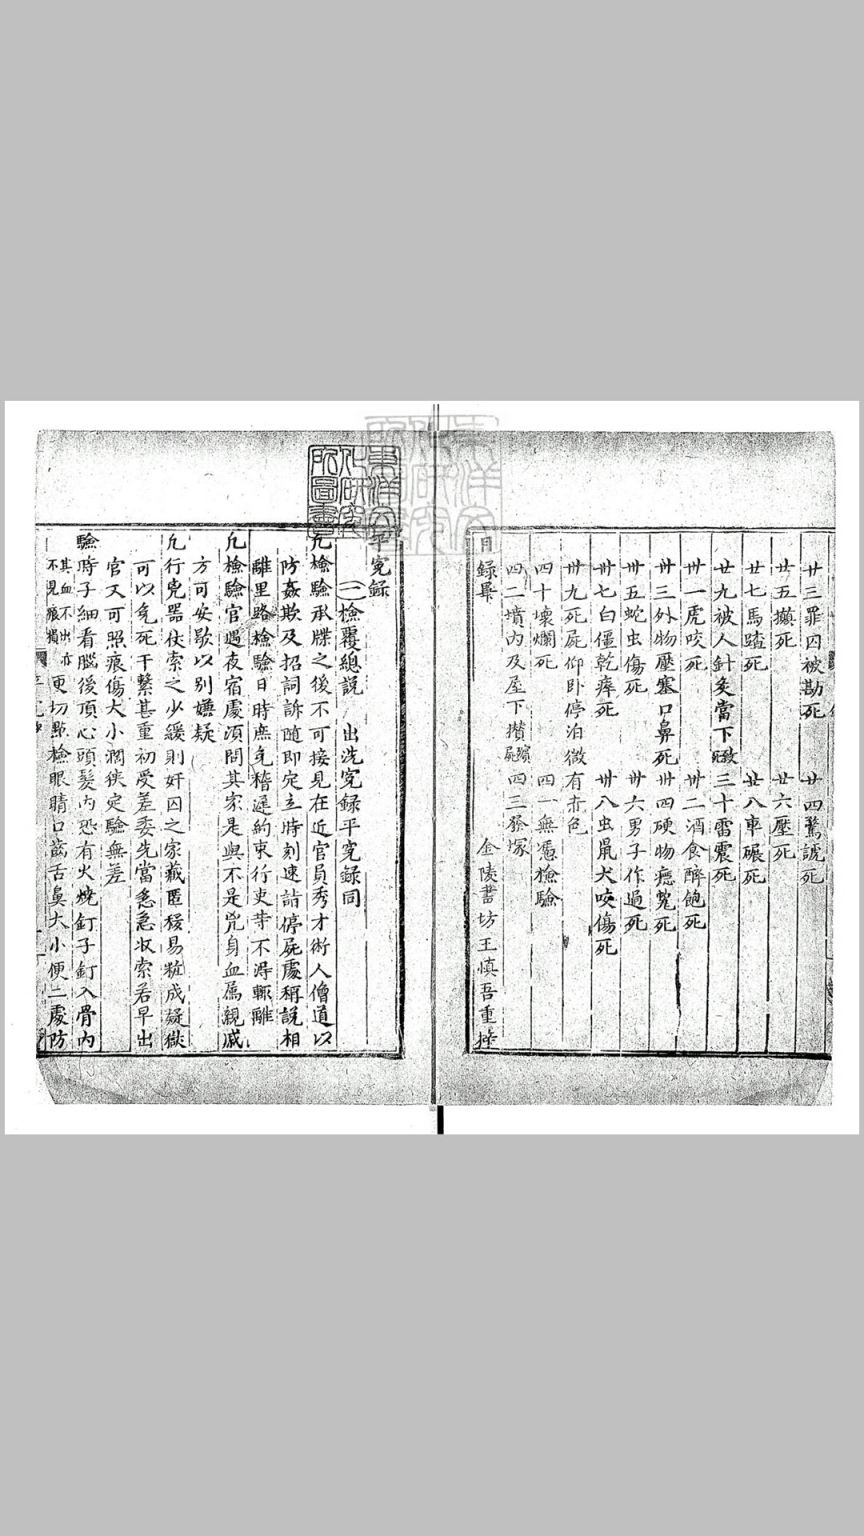 廿三罪囚被勘死　廿四驚諕死
廿五攧死　廿六壓死
廿七馬踏死　廿八車碾死
廿九被人針灸當下致死　三十雷震死
卅一虎咬死　卅二酒食醉飽死
卅三外物壓塞口鼻死　卅四硬物癮㿄死
卅五蛇虫傷死　卅六男子作過死
卅七白僵乾瘁死　卅八虫鼠犬咬傷死
卅九死屍仰卧停泊微有赤色
四十壞爛死　四一無憑檢驗
四二墳内及屋下攢殯屍　四三發塚
目録畢　金陵書坊王慎吾重
平冤録
㈠檢覆總説　出洗冤録平冤録同
凡檢驗承牒之後不可接見在近官員秀才術人僧道以
防姦欺及招詞訴隨即定立時刻速詣停屍處稱説相
離里路檢驗日時庶免稽遲約束行吏等不得輒離
凡檢驗官遇夜宿處湏問其家是與不是兇身血属親戚
方可安歇以别嫌疑
凡行兇器仗索之少緩則奸囚之家藏匿移易粧成疑獄
可以免死干繫甚重初受差委先當急急收索若早出
官又可照痕傷大小濶狹定驗無差
驗時子細看腦後頂心頭髮内恐有火燒釘子釘入骨内
其血不出亦不見痕損更切點檢眼睛口齒舌鼻大小便二處防
東洋文化研究所圖書